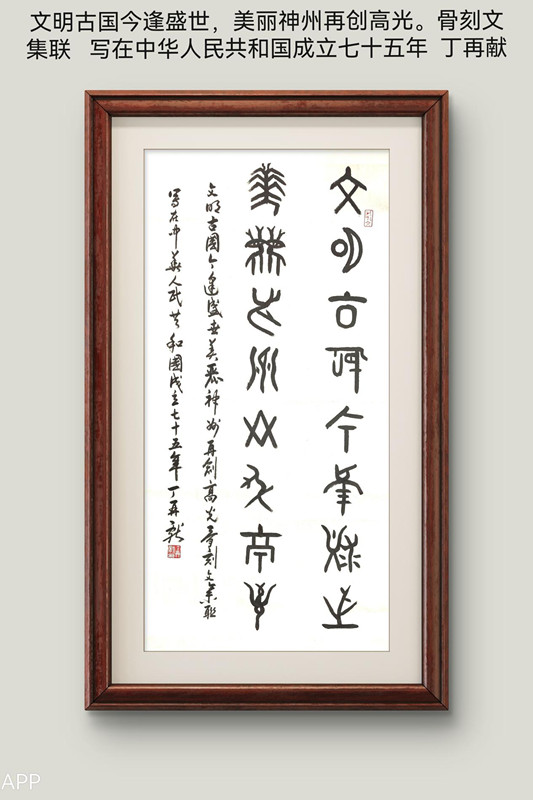 文明古国今逢盛世，美丽神州再创高光。骨刻文
集联 写在中华人民共和国成立七十五年 丁再献
文明古国今逢盛世
美丽神州再创高光
文明古國今逢盛世美丽神州再创高光骨刻文集联
写在中華人民共和國成立七十五年丁再献
APP